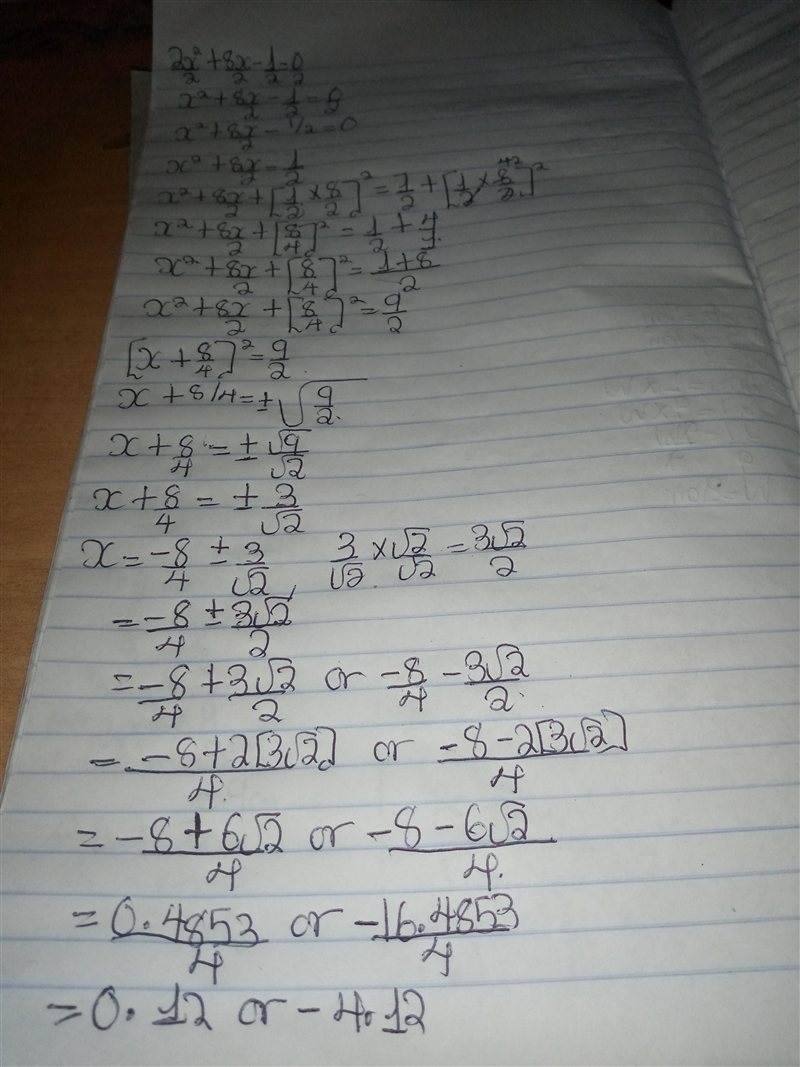 2x²/2 + 8x/2 - 1/2 = 0/2
x² + 8x/2 - 1/2 = 0/2
x² + 8x/2 - 1/2 = 0
x² + 8x/2 = 1/2
x² + 8x/2 + [1/2 × 8/2]² = 1/2 + [1/2 × 8/2]²
x² + 8x/2 + [8/4]² = 1/2 + 4/1
x² + 8x/2 + [8/4]² = (1+8)/2
x² + 8x/2 + [8/4]² = 9/2
[x + 8/4]² = 9/2
x + 8/4 = ±√(9/2)
x + 8/4 = ± √9/√2
x + 8/4 = ± 3/√2
x = -8/4 ± 3/√2, 3/√2 × √2/√2 = 3√2/2
= -8/4 ± 3√2/2
= -8/4 + 3√2/2 or -8/4 - 3√2/2
= (-8+2[3√2])/4 or (-8-2[3√2])/4
= (-8+6√2)/4 or (-8-6√2)/4
= 0.4853/4 or -16.4853/4
= 0.12 or -4.12